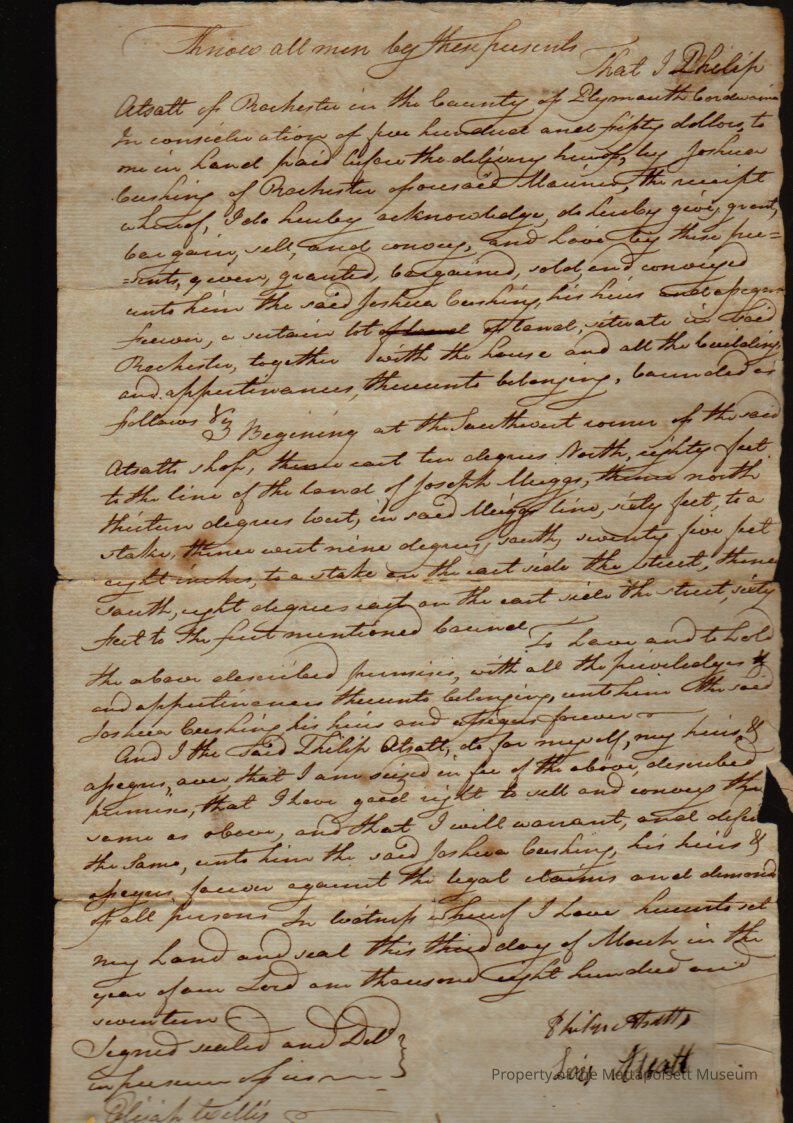 Know all men by these presents
That I Philip
Atsatt of Rochester in the County of Plymouth Cordwainer
In consideration of five hundred and fifty dollars, to
me in hand paid before the delivery hereof, by Joshua
Cushing of Rochester aforesaid Mariner, the receipt
whereof, I do hereby acknowledge, do hereby give, grant,
bargain, sell, and convey, and have by these pre=
=sents, given, granted, bargained, sold, and conveyed
unto him the said Joshua Cushing, his heirs and assigns
forever, a certain lot of land of land, situate in said
Rochester, together with the house and all the buildings
and appertinances, thereunto belonging, bounded as
follows Viz Begining at the Southwest corner of the said
Atsatts shop, thence east ten degrees North, eighty feet
to the line of the land of Joseph Meiggs, thence north
thirteen degrees West, in said Meiggs line, sixty feet, to a
stake, thence west nine degrees, south, seventy five feet
eight inches, to a stake on the east side the street, thence
south, eight degrees east on the east side the street, sixty
feet to the first mentioned bound To have and to hold
the above described premises, with all the priviledges &
and appertinances thereunto belonging, unto him the said
Joshua Cushing his heirs and assigns forever
And I the said Philip Atsatt, do for myself, my heirs &
assigns, aver that I am seized in fee of the above, described
premises, that I have good right to sell and convey the
same as above, and that I will warrant, and defend
the same, unto him the said Joshua Cushing, his heirs &
assigns forever against the legal claims and demands
of all persons In witness whereof I have hereunto set
my hand and seal this third day of March in the
year of our Lord one thousand eight hundred and
seventeen
Signed sealed and Deld
in presence of us
Philip Atsatt
Atsatt
Elijah Willis
Property of the Mattapoisett Museum